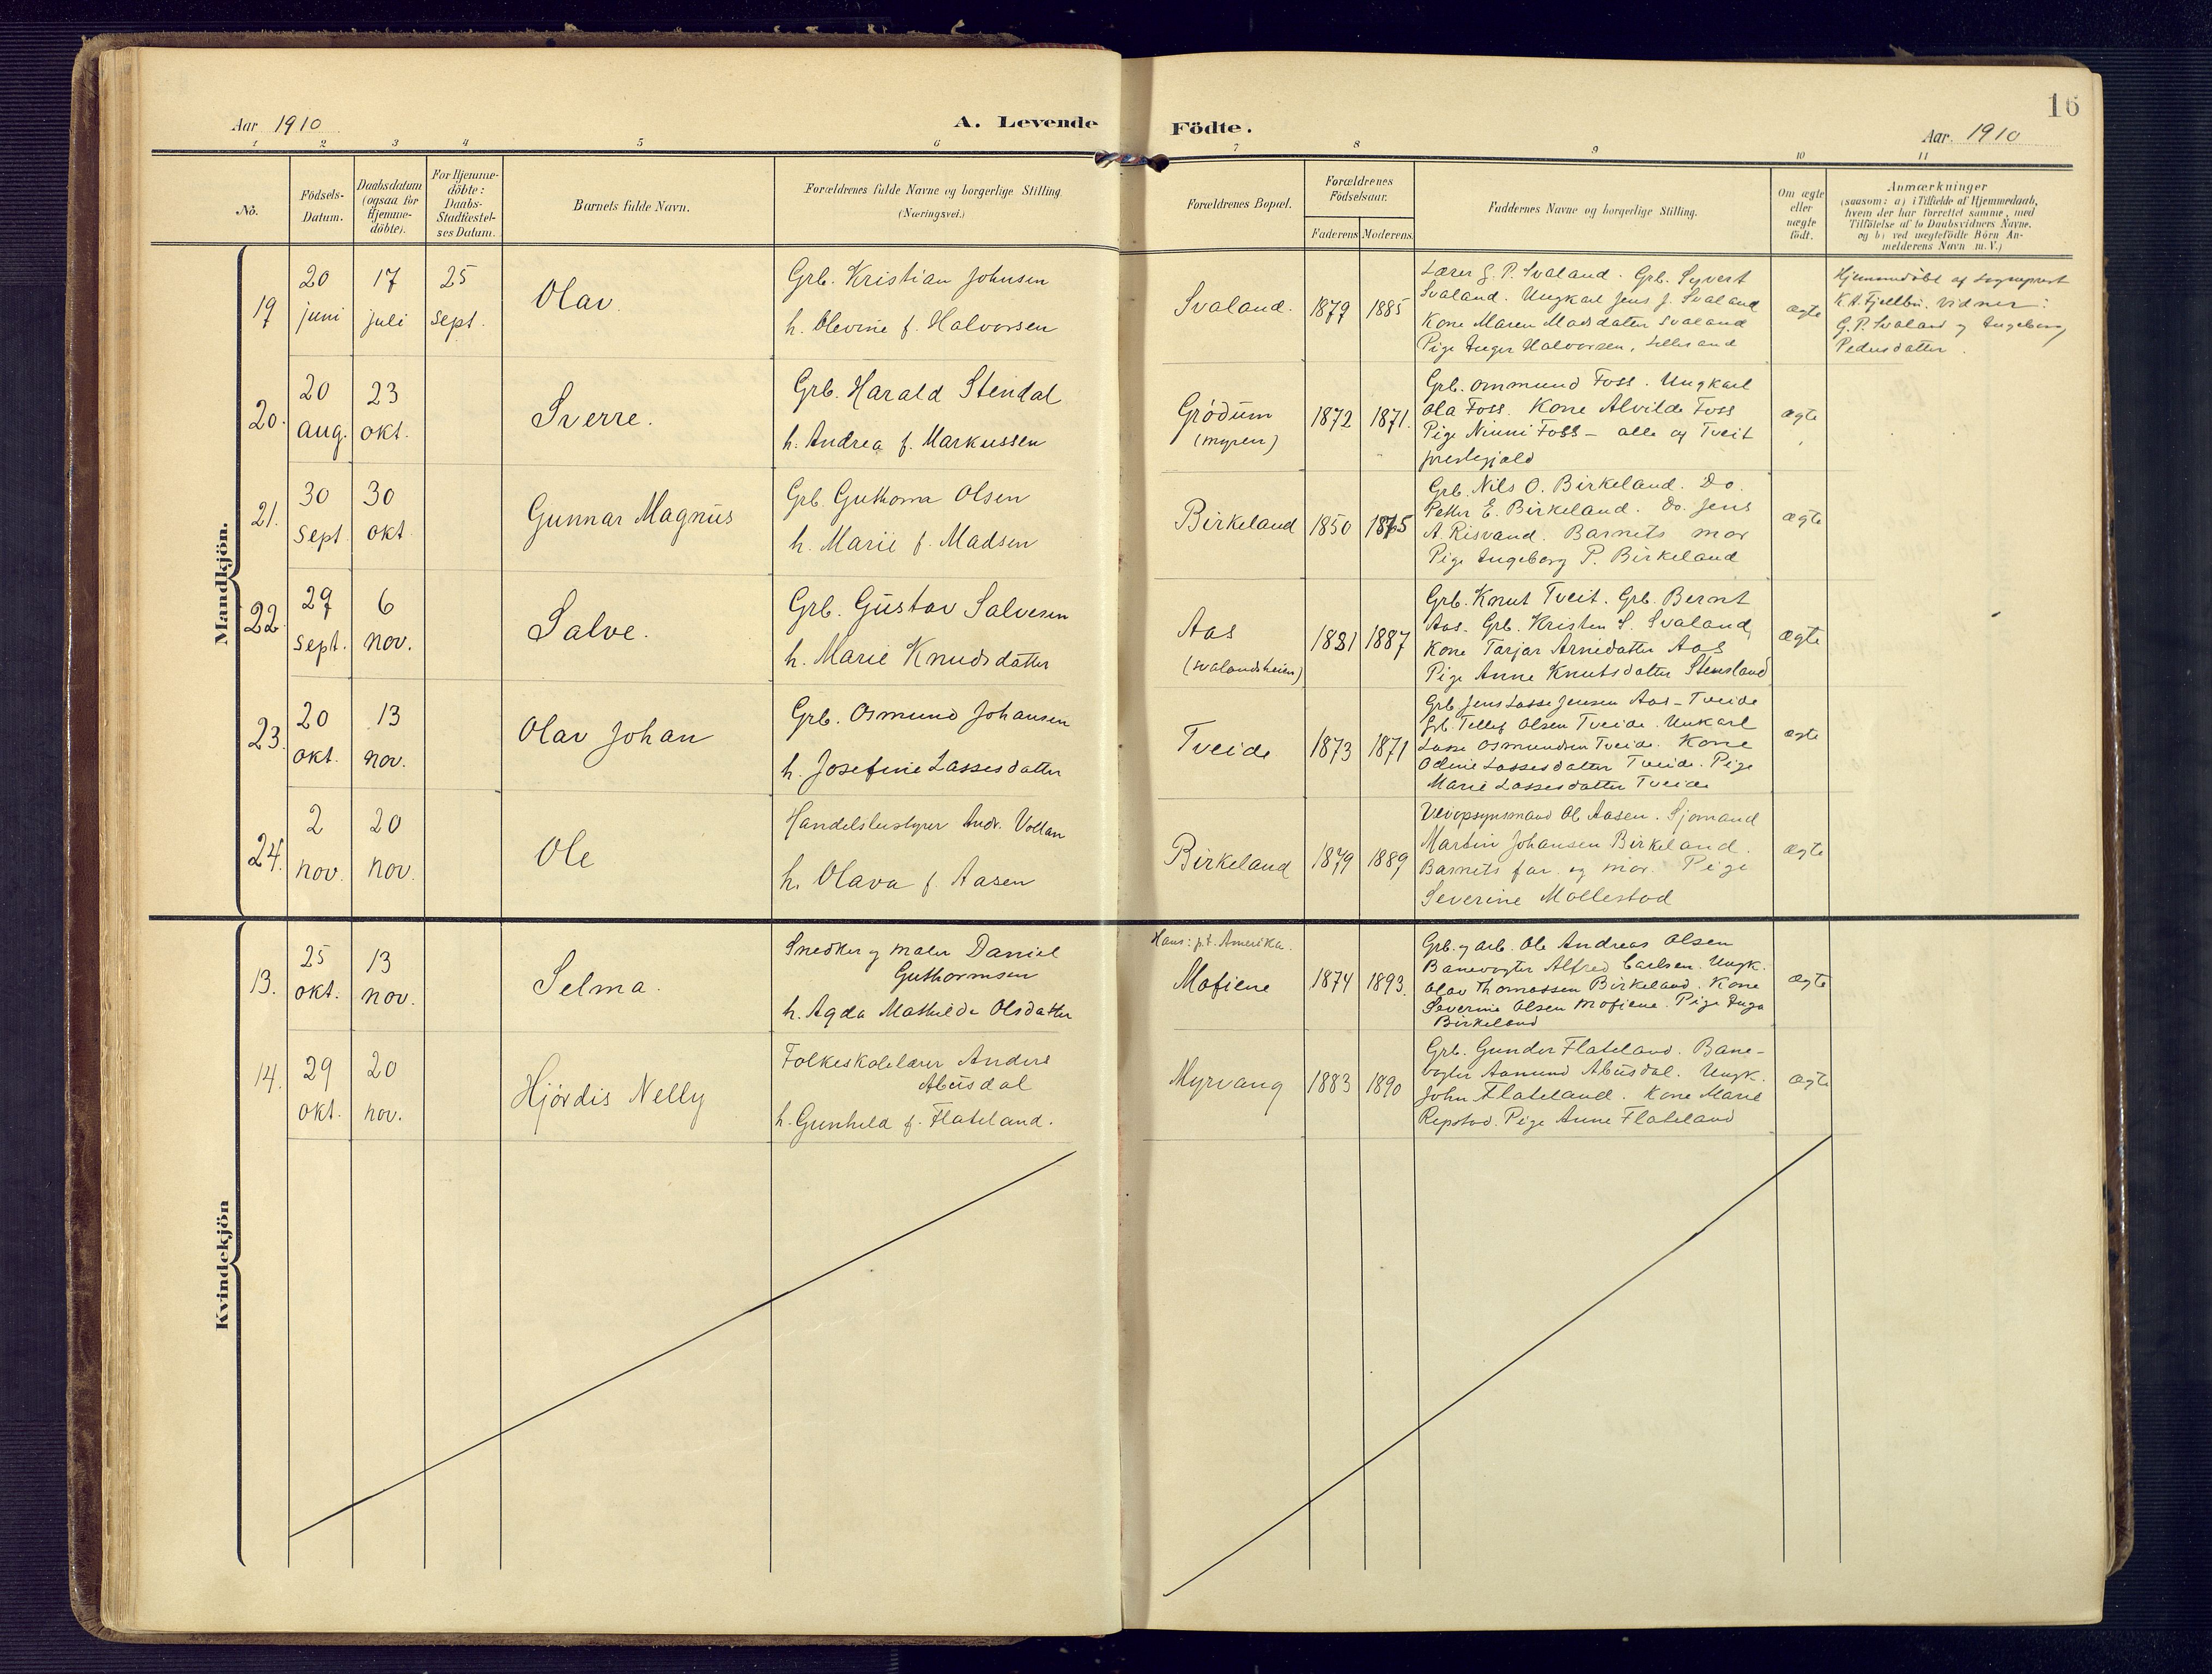 16
Aar 1910
A. Levende Födte.
Aar. 1910
1 2 3 4 5 6 7 8 9 10 11
No.
Födsels-Datum.
Daabsdatum (ogsaa for Hjemme-döbte).
For Hjemme-döbte: Daabs-Stadfæstel-ses Datum.
Barnets fulde Navn.
Forældrenes fulde Navne og borgerlige Stilling.
(Næringsvei.)
Forældrenes Bopæl.
Forældrenes Födselsaar.
Faderens Moderens.
Faddernes Navne og borgerlige Stilling.
Om ægte eller uægte födt.
Anmærkninger
(saasom: a) i Tilfælde af Hjemmedaab,
hvem der har forrettet samme, med
Tilföielse af to Daabsvidners Navne.
og b) ved uægtefödte Börn An-
melderens Navn m. V.)
Mandkjön.
19
20 juni
17 juli
25 sept.
Olav.
Grb. Kristian Johnsen
h. Olevine f. Halvorsen
Svaland.
1879
1885
Lærer G. P. Svaland. Grb. Syvert
Svaland. Ungkarl Jens J. Svaland
Kone Maren Madsdatter Svaland
Pige Inger Halvorsen, Lillesand
ægte
Hjemmedöbt af sogneprest
K. A. Fjellbu. Vidner:
G. P. Svaland og Ingeborg
Pedersdatter.
20.
20 aug.
23 okt.
Sverre.
Grb. Harald Stendal
h. Andrea f. Markussen
Grödum
(myren)
1872
1871.
Grb. Ommund Foss. Ungkarl
Ola Foss. Kone Alvilde Foss
Pige Ninni Foss - alle af Tveit
prestegjeld
ægte
21.
30 sept
30 okt
Gunnar Magnus
Grb. Guthorm Olsen
h. Marie f. Madsen
Birkeland
1850
1865
Grb. Nils O. Birkeland. Do.
Petter E. Birkeland. Do. Jens
A. Risvand. Barnets mor
Pige Ingeborg P. Birkeland
ægte
22
29 sept.
6 nov.
Salve.
Grb. Gustav Salvesen
h. Marie Knudsdatter
Aas
(svalandsheien)
1881
1887
Grb. Knut Tveit. Grb. Bernt
Aas. Grb. Kristen S. Svaland,
Kone Tarjar Arnedatter Aas
Pige Anne Knutsdatter Stensland
ægte
23.
20 okt.
13 nov.
Olav Johan
Grb. Osmund Johansen
h. Josefine Lassesdatter
Tveide
1873
1871
Grb. Jens Lasse Jensen Aas - Tveide
Grb. Tellef Olsen Tveide. Unkarl
Lasse Osmundsen Tveide. Kone
Odine Lassesdatter Tveide. Pige
Marie Lassesdatter Tveide
ægte
24.
2 nov.
20 nov.
Ole
Handelsbestyrer Andr. Vollan
h. Olava f. Aasen
Birkeland
1879
1889
Veiopsynsmand Ol. Aasen. Sjömand
Martin Johansen Birkeland.
Barnets far og mor. Pige
Severine Mollestad
ægte
Kvindekjön
13.
25 okt.
13 nov.
Selma.
Snedker og maler Daniel
Guthormsen
h. Agda Mathilde Olsdatter
Hans: p.t. Amerika.
Mofiene
1874
1893.
Grb. og arb. Ole Andreas Olsen
Banevogter Alfred Carlsen. Ungk.
Olav Thomassen Birkeland. Kone
Severine Olsen Mofiene. Pige Inga
Birkeland
ægte
14.
29 okt.
20 nov.
Hjördis Nelly
Folkeskolelærer Anders
Abusdal
h. Gunhild f. Flateland.
Myrvang
1883
1890
Grb. Gunder Flateland. Bane-
vogter Aamund Abusdal. Ungk.
John Flateland. Kone Marie
Repstad. Pige Anne Flateland
ægte